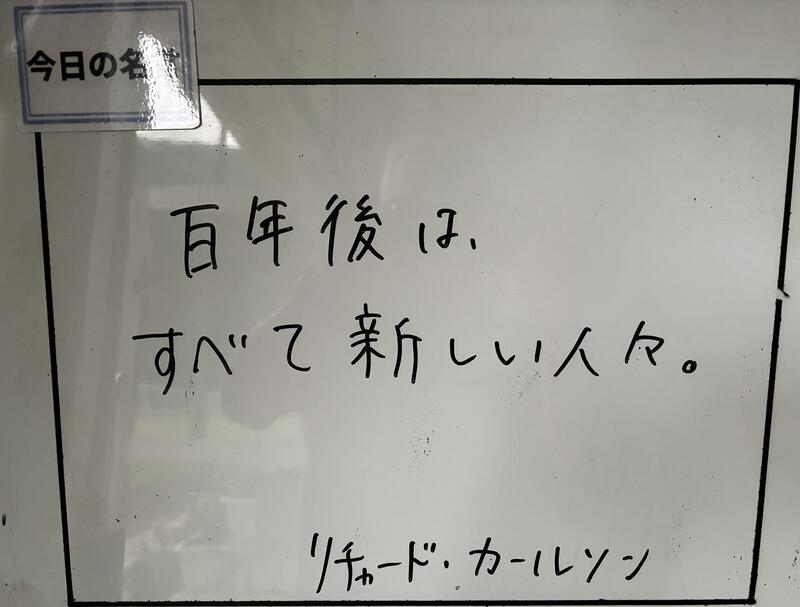 今日の名
百年後は、
すべて新しい人々。
リチャード・カールソン